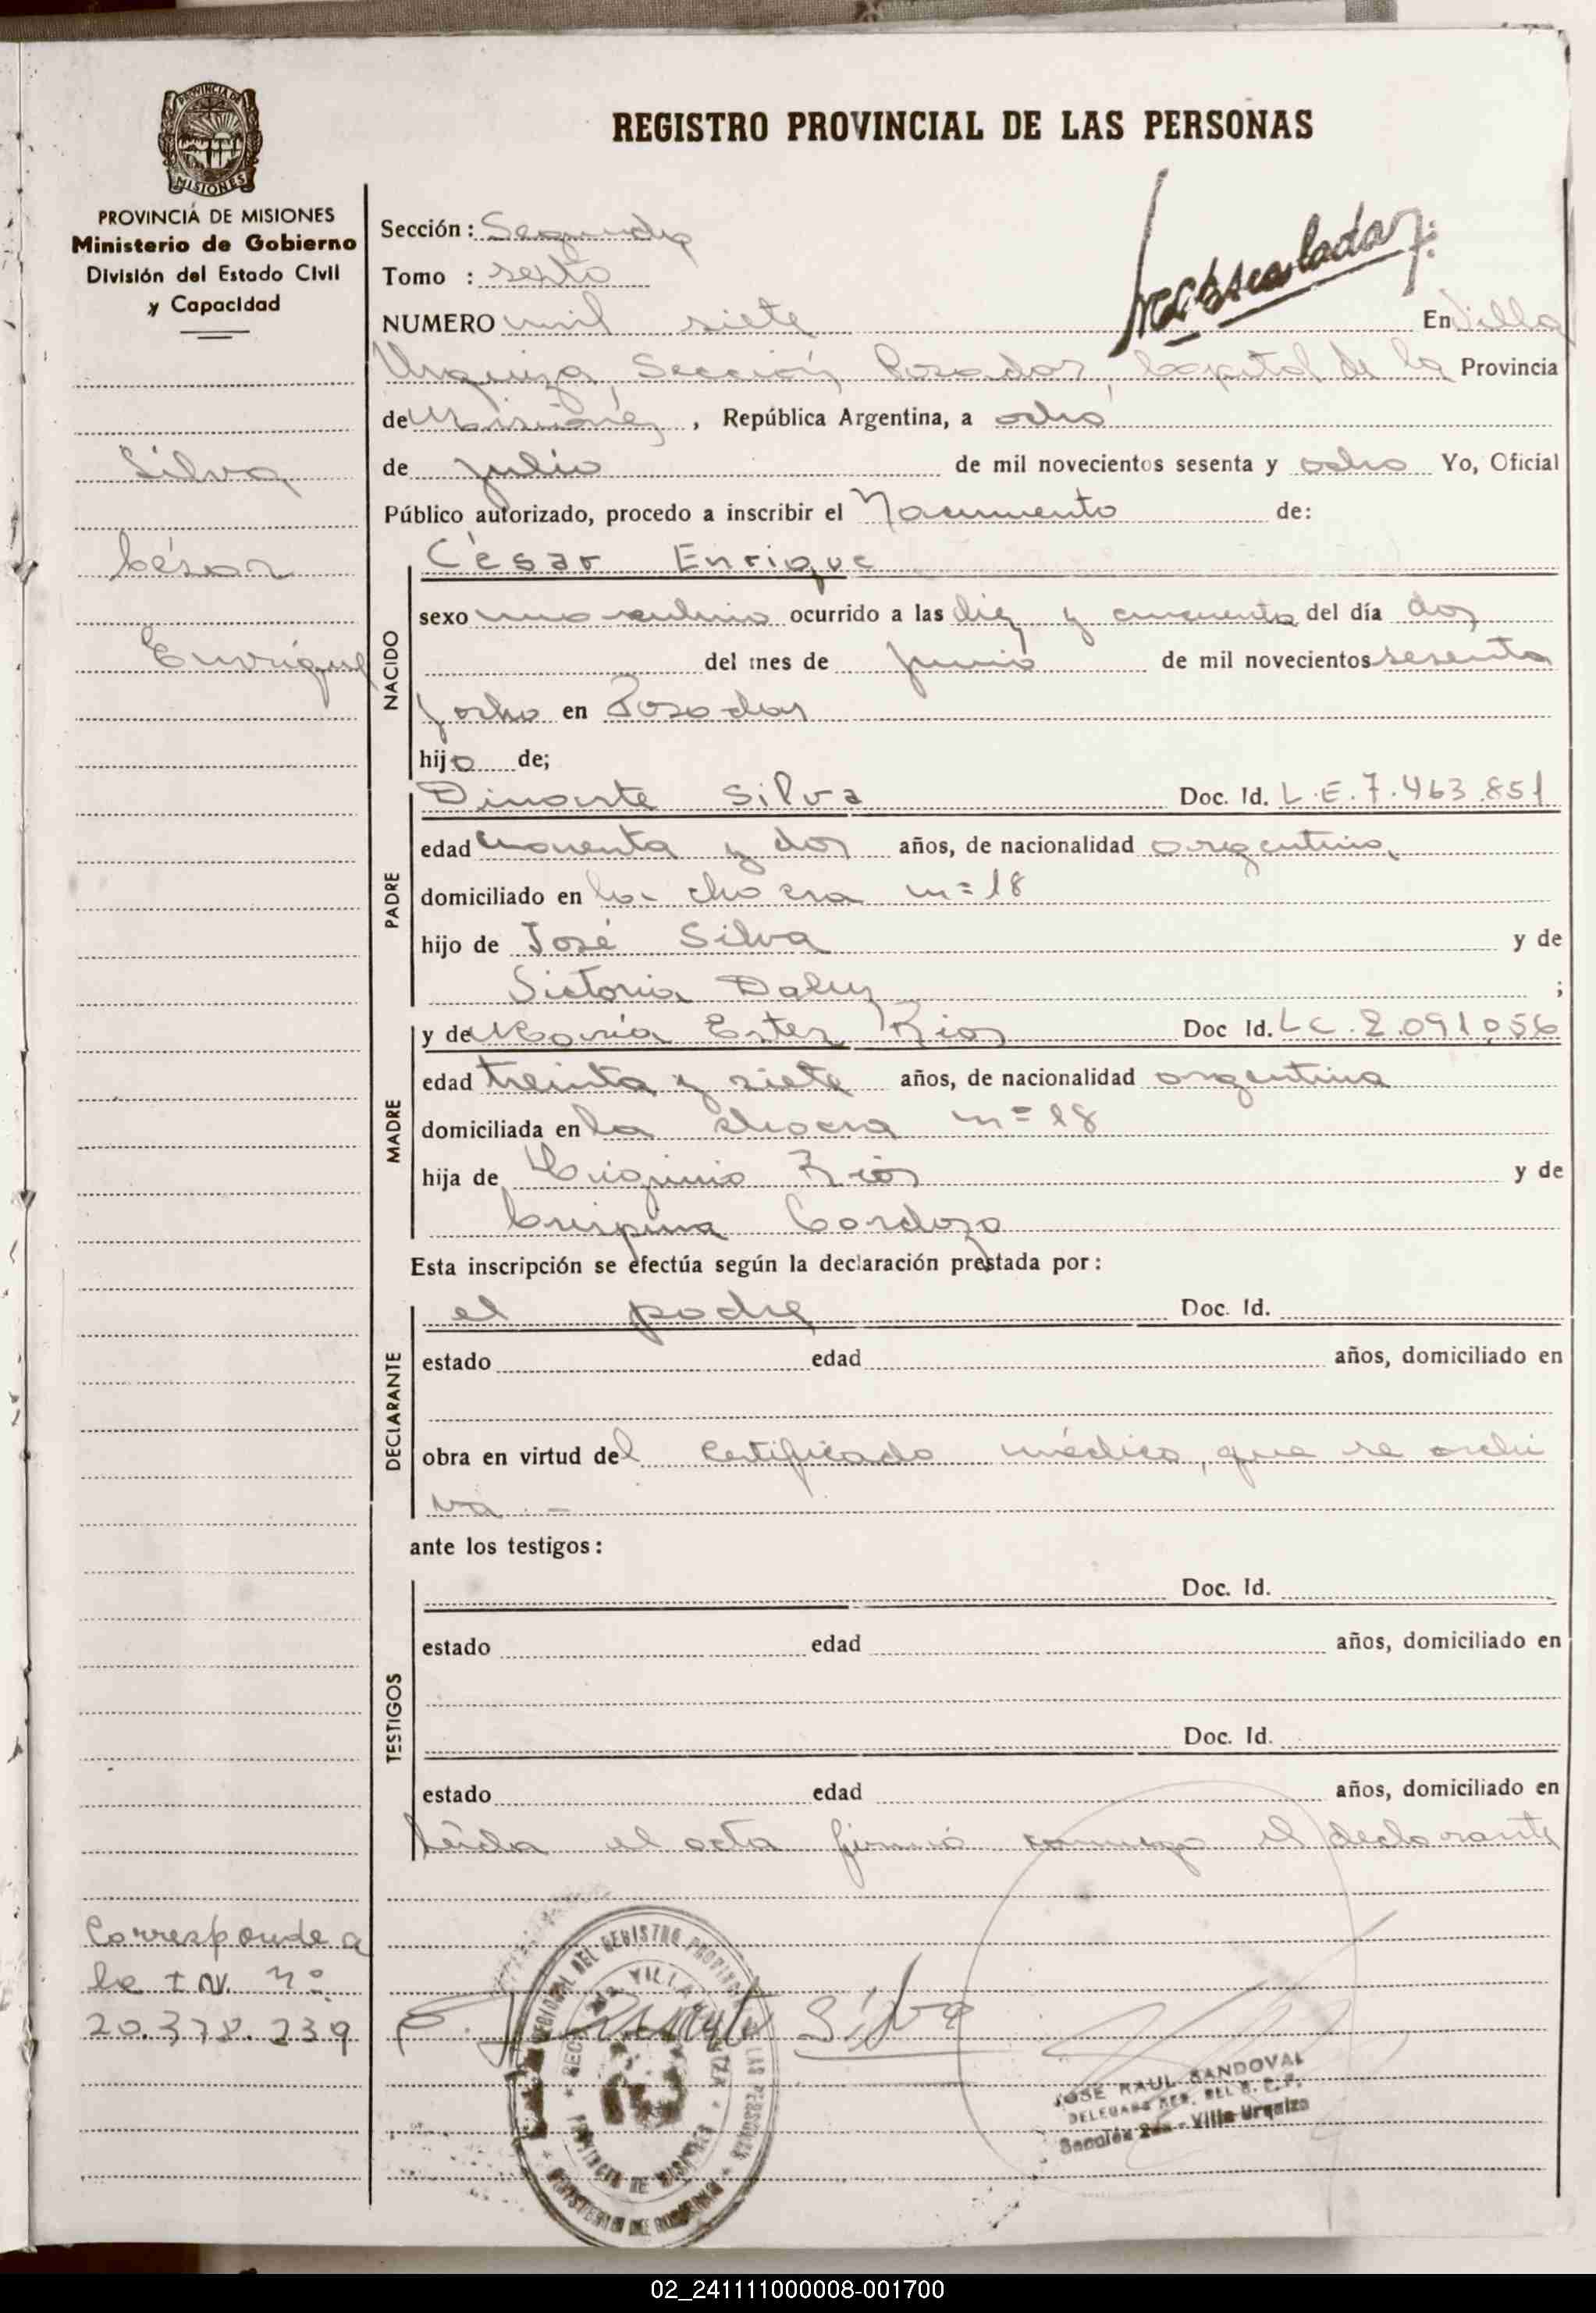 PROVINCIA DE
MISIONES
PROVINCIA DE MISIONES
Ministerio de Gobierno
División del Estado Civil
y Capacidad
Silva
César
Enrique
Corresponde a
la I.N. Nº
20.378.239
REGISTRO PROVINCIAL DE LAS PERSONAS
Sección: Segunda
Tomo : sexto
NUMERO mil siete En Villa
Urquiza, Sección Posadas, Capital de la Provincia
de Misiones, República Argentina, a ocho
de julio de mil novecientos sesenta y ocho Yo, Oficial
Público autorizado, procedo a inscribir el Nacimiento de:
NACIDO
César Enrique
sexo masculino ocurrido a las diez y cincuenta del día dos
del mes de junio de mil novecientos sesenta
y ocho en Posadas
hijo de;
PADRE
Dinarte Silva Doc. Id. L.E.7.463.851
edad cuarenta y dos años, de nacionalidad argentina,
domiciliado en la chacra nº 18
hijo de José Silva y de
Sictoria Daluz ;
MADRE
y de María Ester Rios Doc Id. L C.2.091.056
edad treinta y siete años, de nacionalidad argentina
domiciliada en la chacra nº 18
hija de Higinio Rios y de
Crispina Cardozo
Esta inscripción se efectúa según la declaración prestada por:
DECLARANTE
el padre Doc. Id.
estado edad años, domiciliado en
obra en virtud del certificado médico, que se archi
va.-
ante los testigos:
TESTIGOS
Doc. Id.
estado edad años, domiciliado en
Doc. Id.
estado edad años, domiciliado en
Leída el acta firmó conmigo el declarante
Dinarte Silva
JOSE RAUL SANDOVAL
Sección 2da - Villa Urquiza
02_241111000008-001700